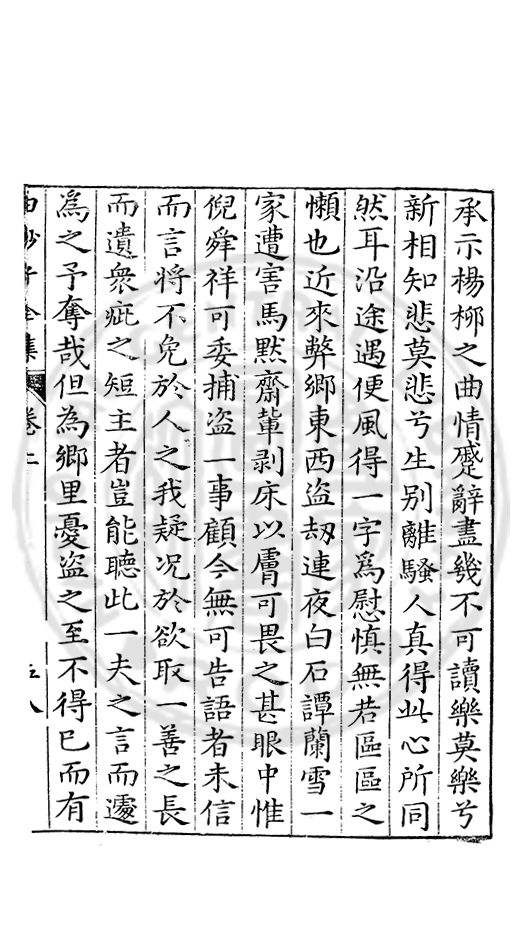 承示楊柳之曲情蹙辭盡幾不可讀樂莫樂兮
新相知悲莫悲兮生别離騷人真得此心所同
然耳沿途遇便風得一字爲慰慎無若區區之
懶也近來弊鄉東西盜刼連夜白石譚蘭雪一
家遭害馬黙齋軰剥床以膚可畏之甚眼中惟
倪舜祥可委捕盜一事顧今無可告語者未信
而言將不免於人之我疑况於欲取一善之長
而遺衆疵之短主者豈能聽此一夫之言而遽
爲之予奪哉但为鄉里憂盜之至不得已而有
白沙子全集 卷二